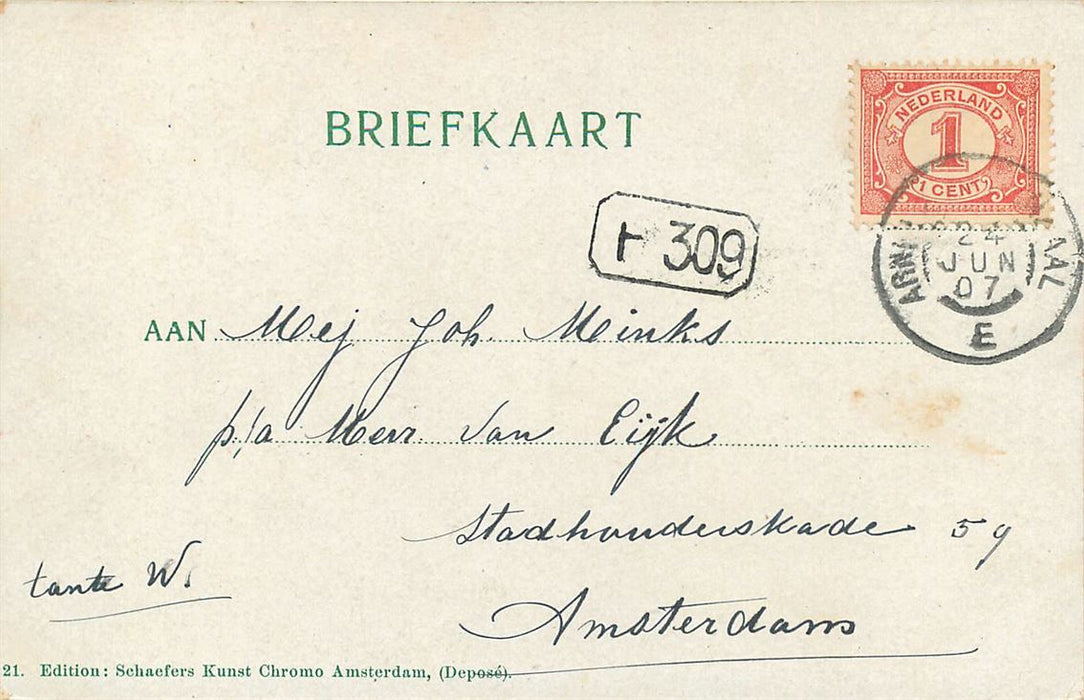 BRIEFKAART
NEDERLAND
1
1 CENT
309
24
JUN
07
E
AAN Mej Joh. Minks
p/a Mevr van Eijk
Stadhouderskade 59
Amsterdam
tante W.
21. Edition: Schaefers Kunst Chromo Amsterdam, (Deposé).